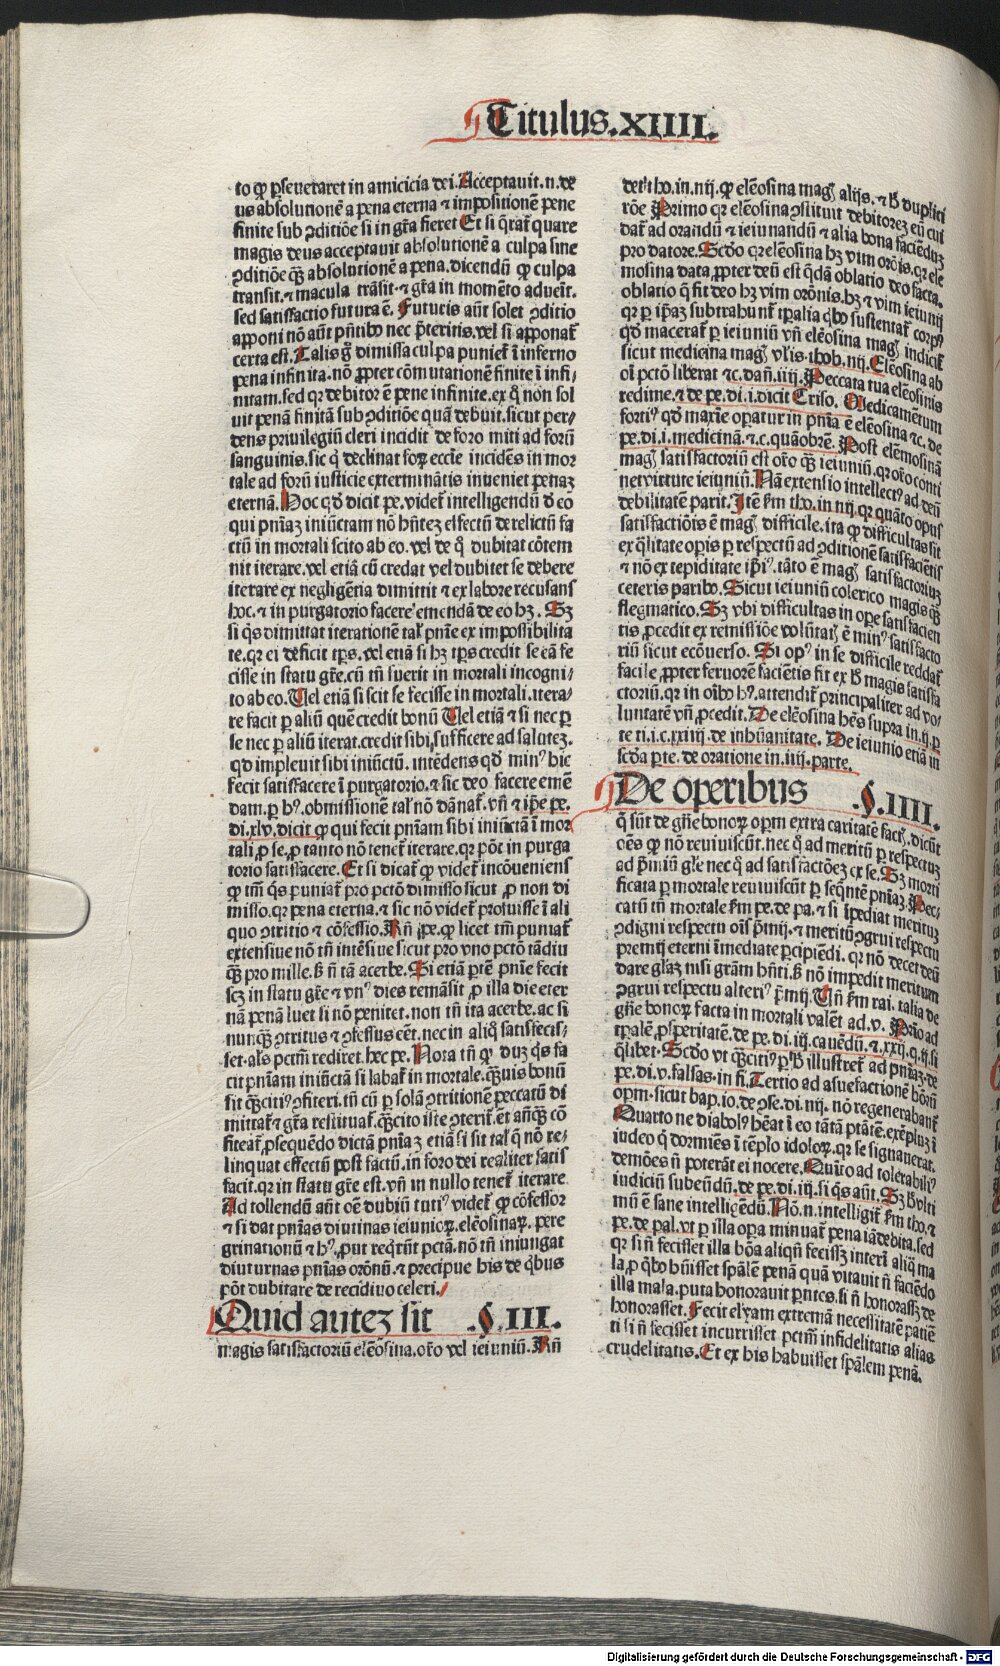 Titulus.XIIII.
to ꝙ ꝑseueraret in amicicia dei.Acceptauit.n.de
us absolutionē a pena eterna ⁊ impositionem pene
finite sub ꝯditiōe si in grā fieret Et si q̄rat᷑ quare
magis deus acceptauit absolutionē a culpa sine
ꝯditiōe qꝫ absolutionē a pena.dicendū ꝙ culpa
transit.⁊ macula trāsit.⁊ grā in momēto adueīt.
sed satisfactio futura ē. Futuris aūt solet ꝯditio
apponi nō aūt pn̄tibo nec p̄teritis.vel si apponat᷑
certa est.Talis gͦ dimissa culpa puniet᷑ ī inferno
pena infinita.nō ꝓpter cōmutationē finite ī infi-
nitam.sed qꝛ debitor ē pene infinite.ex qͦ non sol
uit penā finitā sub ꝯditiōe quā debuit.sicut per-
dens priuilegiū cleri incidit de foro miti ad forū
sanguinis.sic qͥ declinat forꝫ eccīe incidēs in mor
tale ad forū iusticie exterminātis inueniet penaꝫ
eternā.Hoc qd̄ dicit pe.videt᷑ intelligendū ꝺ eo
qui pn̄iaꝫ iniūctam nō hn̄teꝫ effectū derelictū fa
ctū in mortali scito ab eo.vel de qͦ dubitat cōtem
nit iterare.vel etiā cū credat vel dubitet se debere
iterare ex negligētia dimittit ⁊ ex labore recusans
hoc.⁊ in purgatorio facere emendā de eo hꝫ. Sꝫ
si qͥs dimittat iterationē tal᷑ pn̄ie ex impossibilita
te.qꝛ ei deficit tp̄s.vel etiā si hꝫ tp̄s credit se eā fe
cisse in statu grē.cū tn̄ fuerit in mortali incogni-
to ab eo.Uel etiā si scit se fecisse in mortali.itera-
re facit ꝑ aliū quē credit bonū Uel etiā ⁊ si nec ꝑ
se nec ꝑ aliū iterat.credit sibi sufficere ad saluteꝫ.
qd̄ impleuit sibi iniūctū.intēdens qd̄ minꝰ hic
fecit satisfacere ī purgatorio.⁊ sic deo facere emē
dam.ꝑ hꝰ.obmissionē tal᷑ nō dānat᷑.vn̄ ⁊ ip̄e pe.
di.xlv.dicit ꝙ qui fecit pn̄iam sibi iniūctā ī mor
tali ꝓ se.ꝓ tanto nō tenet᷑ iterare.qꝛ pōt in purga
torio satisfacere.Et si dicat᷑ ꝙ videt᷑ incōueniens
ꝙ tm̄ qͥs puniat᷑ pro pctō dimisso sicut ꝓ non di
misso.qꝛ pena eterna.⁊ sic nō videt᷑ profuisse ī ali
quo ꝯtritio ⁊ cōfessio.Rn̄ pe.ꝙ licet tm̄ puniat᷑
extensiue nō tn̄ intēsiue sicut pro vno pctō tādiu
qꝫ pro mille.ß n̄ tā acerbe.Si etiā ꝑtē pn̄ie fecit
scꝫ in statu grē ⁊ vnꝰ dies remāsit ꝓ illa die eter
nā penā luet si nō penitet.non tn̄ ita acerbe.ac si
nunqꝫ ꝯtritus ⁊ ꝯfessus eēt.nec in aliqͦ satisfecis-
set.als pctm̄ rediret.hec pe.Nota tn̄ ꝙ duꝫ qͥs fa
cit pn̄iam iniūctā si labat᷑ in mortale.qꝫuis bonū
sit qꝫcitiꝰ ꝯfiteri.tn̄ cū ꝑ solā ꝯtritionē peccatū di
mittat᷑ ⁊ grā restituat᷑.qꝫcito iste ꝯterit᷑.et anqꝫ cō
fiteat᷑ ꝓsequēdo dictā pn̄iaꝫ etiā si sit tal᷑ qͥ nō re-
linquat effectū post factū.in foro dei realiter satis
facit.qꝛ in statu grē est.vn̄ in nullo tenet᷑ iterare
Ad tollendū aūt oē dubiū tutiꝰ videt᷑ ꝙ cōfessor
⁊ si dat pn̄ias diutinas ieiunioꝝ.elēosinaꝝ. pere
grinationū ⁊ hꝰ.put reqͥrūt pctā.nō tn̄ iniungat
diuturnas pn̄ias orōnū.⁊ precipue his de qͥbus
pōt dubitare de recidiuo celeri.
Quid auteꝫ sit .§.III.
magis satisfactoriū elēosina.orō vel ieiuniū.Rn̄
det tho.in.iiij.ꝙ elēosina magꝭ alijs.⁊ ꝺ duplici
rōe Primo qꝛ elēosina ꝯstituit debitoreꝫ eū cui
dat᷑ ad orandū ⁊ ieiunandū ⁊ alia bona faciēduꝫ
pro datore.Scd̄o qꝛ elēosina hꝫ vim orōis.qꝛ ele
mosina data ꝓpter deū est qd̄ā oblatio deo facta.
oblatio q̄ fit deo hꝫ vim orōnis.hꝫ ⁊ vim ieiunij
qꝛ ꝑ ip̄aꝫ subtrahunt᷑ tꝑalia qͥbo sustentat᷑ corpꝰ
qd̄ macerat᷑ ꝑ ieiuniū vn̄ elēosina magꝭ indicit᷑
sicut medicina magꝭ vlis.thob.iiij.Elēosina ab
oī pctō liberat ⁊c.dan̄.iiij.Peccata tua elēosinis
redime.⁊ de pe.di.i.dicit Criso. Medicamētum
fortiꝰ qd̄ maxīe operatur in pn̄ia ē elēosina ⁊c.de
pe.di.i.medicinā.⁊.c.quāobrē. Post elēmosinā
magꝭ satisfactoriū est orō qꝫ ieiuniū.qꝛ orō conti
net virtute ieiuniū.Nā extensio intellectꝰ ad deū
debilitatē parit.Itē ẜm tho.in.iiij.qꝛ quāto opus
satisfactiōis ē magꝭ difficile.ita ꝙ difficultas sit
ex qͣlitate opis ꝑ respectū ad ꝯditionē satisfaciētis
⁊ nō ex tepiditate ip̄iꝰ.tāto ē magꝭ satisfactoriuꝫ
ceteris paribo.Sicut ieiuniū colerico magis qꝫ
flegmatico.Sꝫ vbi difficultas in ope satisfacien
tis ꝓcedit ex remissiōe volūtatꝭ ē minꝰ satisfacto
riū sicut ecōuerso. Si opꝰ in se difficile reddat᷑
facile ꝓpter feruorē faciētis fit ex ꝺ magis satisfa
ctoriū.qꝛ in oībo hꝰ.attendit᷑ principaliter ad vo-
luntatē vn̄ ꝓcedit.De elēosina hēs supra in.ij.ꝑ
te ti.i.c.xxiiij.de inhūanitate. De ieiunio etiā in
scd̄a ꝑte.de oratione in.iiij.parte.
De operibus .§.IIII.
q̄ sūt de gn̄e bonoꝝ opm̄ extra caritatē factꝭ.dicūt
oēs ꝙ nō reuiuiscūt.nec qͦ ad meritū ꝑ respectuꝫ
ad p̄miū gl̄e nec qͦ ad satisfactōeꝫ ex se.Sꝫ morti
ficata ꝑ mortale reuiuiscūt ꝑ seqn̄tē pn̄iaꝫ.Pec-
catū tn̄ mortale ẜm pe.de pa.⁊ si īpediat merituꝫ
ꝯdigni respectu oīs p̄mij.⁊ meritū ꝯgrui respectu
premij eterni īmediate ꝑcipiēdi.qꝛ nō decet deū
dare gl̄aꝫ nisi grām hn̄ti.ß nō impedit meritum
ꝯgrui respectu alteriꝰ p̄mij.Un̄ ẜm rai. talia de
gn̄e bonoꝝ facta in mortali valēt ad.v. Primo ad
tꝑalē ꝓsperitatē.de pe.di.iij.cauēdū.⁊.xxij.q.ij.si
qͥlibet.Scd̄o vt qꝫcitiꝰ ꝑ ꝺ illustret᷑ ad pn̄iaꝫ.de
pe.di.v.falsas.in fi.Tertio ad assuefactionē bōrū
opm̄.sicut bap.io.de ꝯse.di.iiij. nō regenerabant᷑
Quarto ne diabolꝰ hēat ī eo tātā ptātē.exēpluꝫ ī
iudeo qͥ dormiēs ī tēplo idoloꝝ.qꝛ se signauerat.
demōes n̄ poterāt ei nocere.Quīto ad tolerabiliꝰ
iudiciū subeūdū.de pe.di.iij.si qͥs aūt.Sꝫ ꝺ vlti
mū ē sane intelligēdū.Nō.n.intelligit᷑ ẜm tho.⁊
pe.de pal.vt ꝑ illa opa minuat᷑ pena iā debita.sed
qꝛ si n̄ fecisset illa bōa aliqn̄ fecissꝫ interī aliqͣ ma
la.ꝓ qͥbo hūisset spālē penā quā vitauit n̄ faciēdo
illa mala.puta honorauit pn̄tes.si n̄ honorasꝫ de
honorasset.Fecit elyam extremā necessitatē patiē
ti si n̄ fecisset incurrisset pctm̄ infidelitatis alias
crudelitatis.Et ex his habuisset spālem penā.
Digitalisierung gefördert durch die Deutsche Forschungsgemeinschaft - DFG